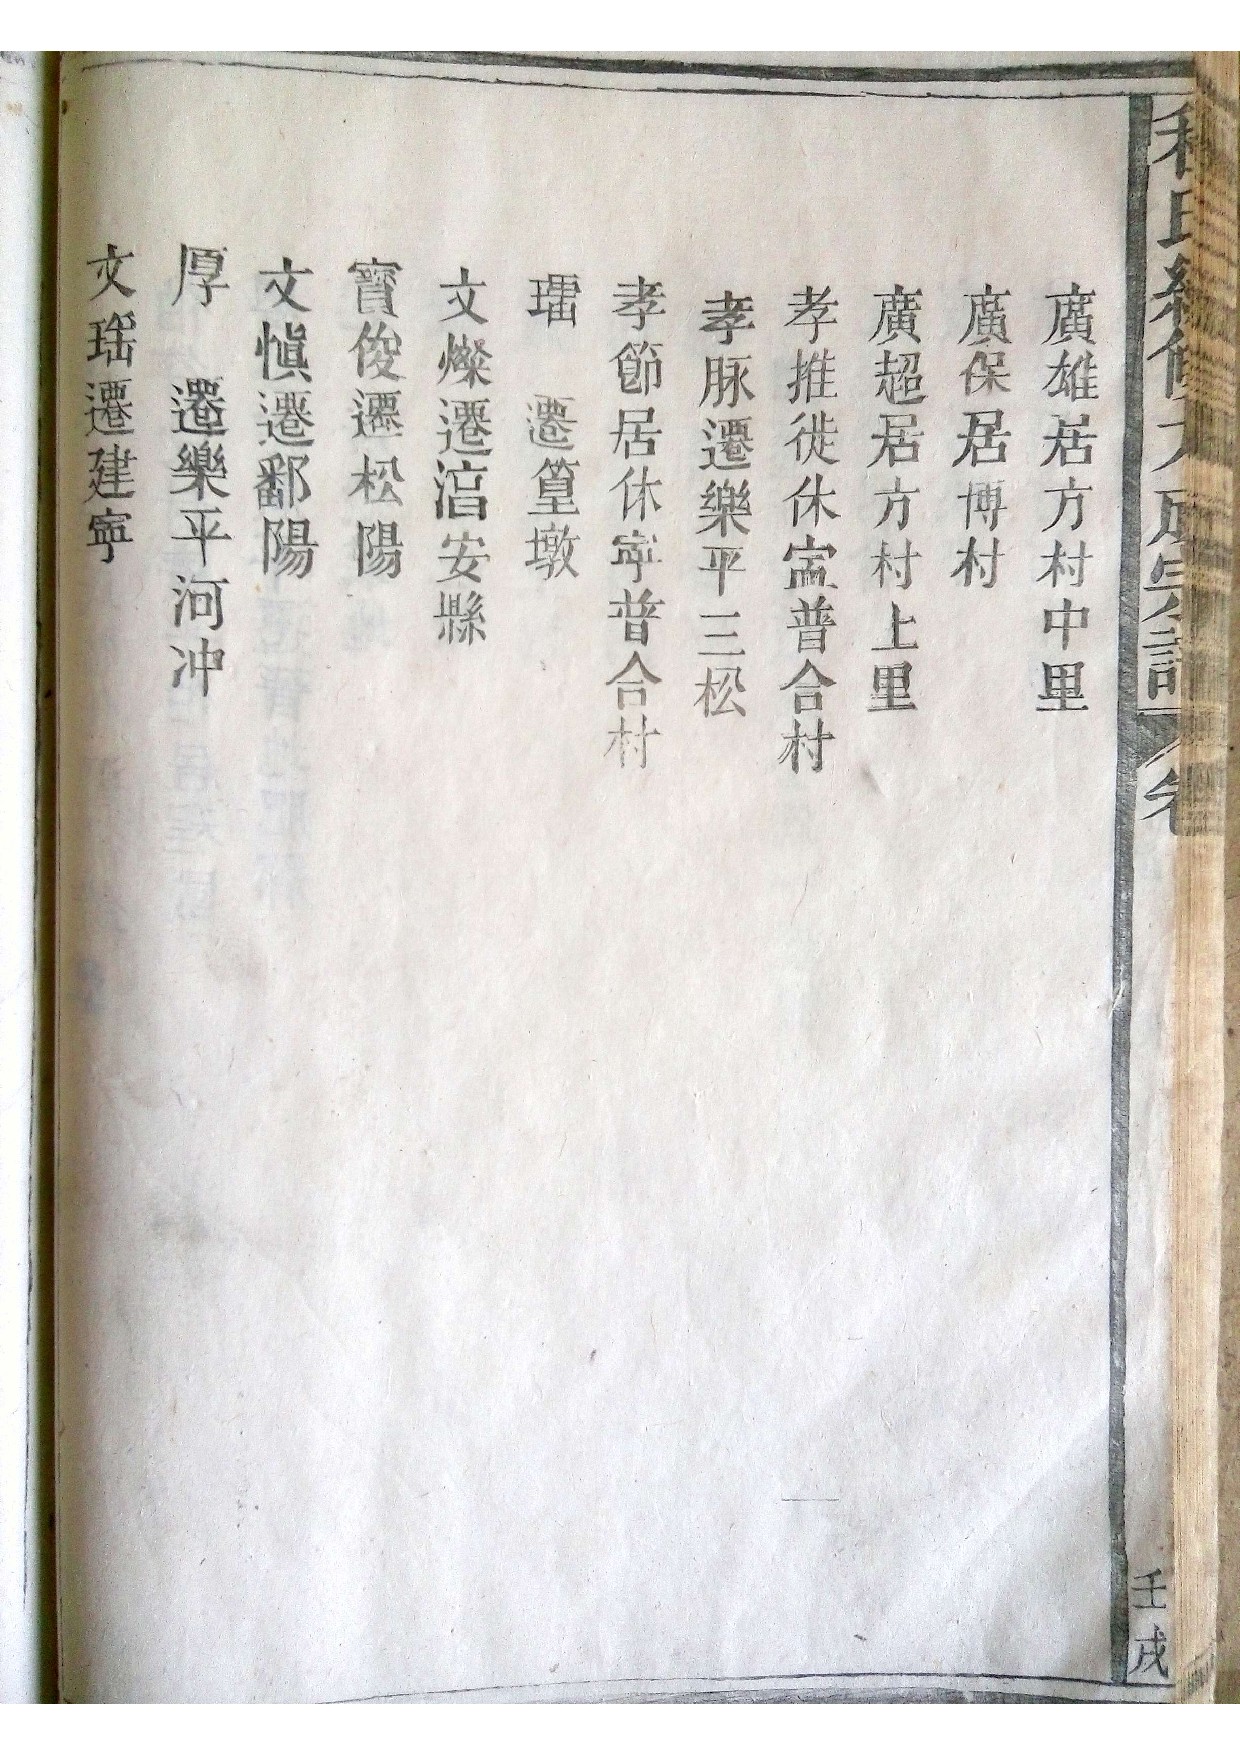 程氏統修大成宗譜 卷
壬戌
廣雄居方村中里
廣保居博村
廣超居方村上里
孝推徙休寍普合村
孝脉遷樂平三松
孝節居休寧普合村
遷篁墩
文燦遷湻安縣
寶俊遷松陽
文愼遷鄱陽
厚 遷樂平河冲
文瑶遷建寧